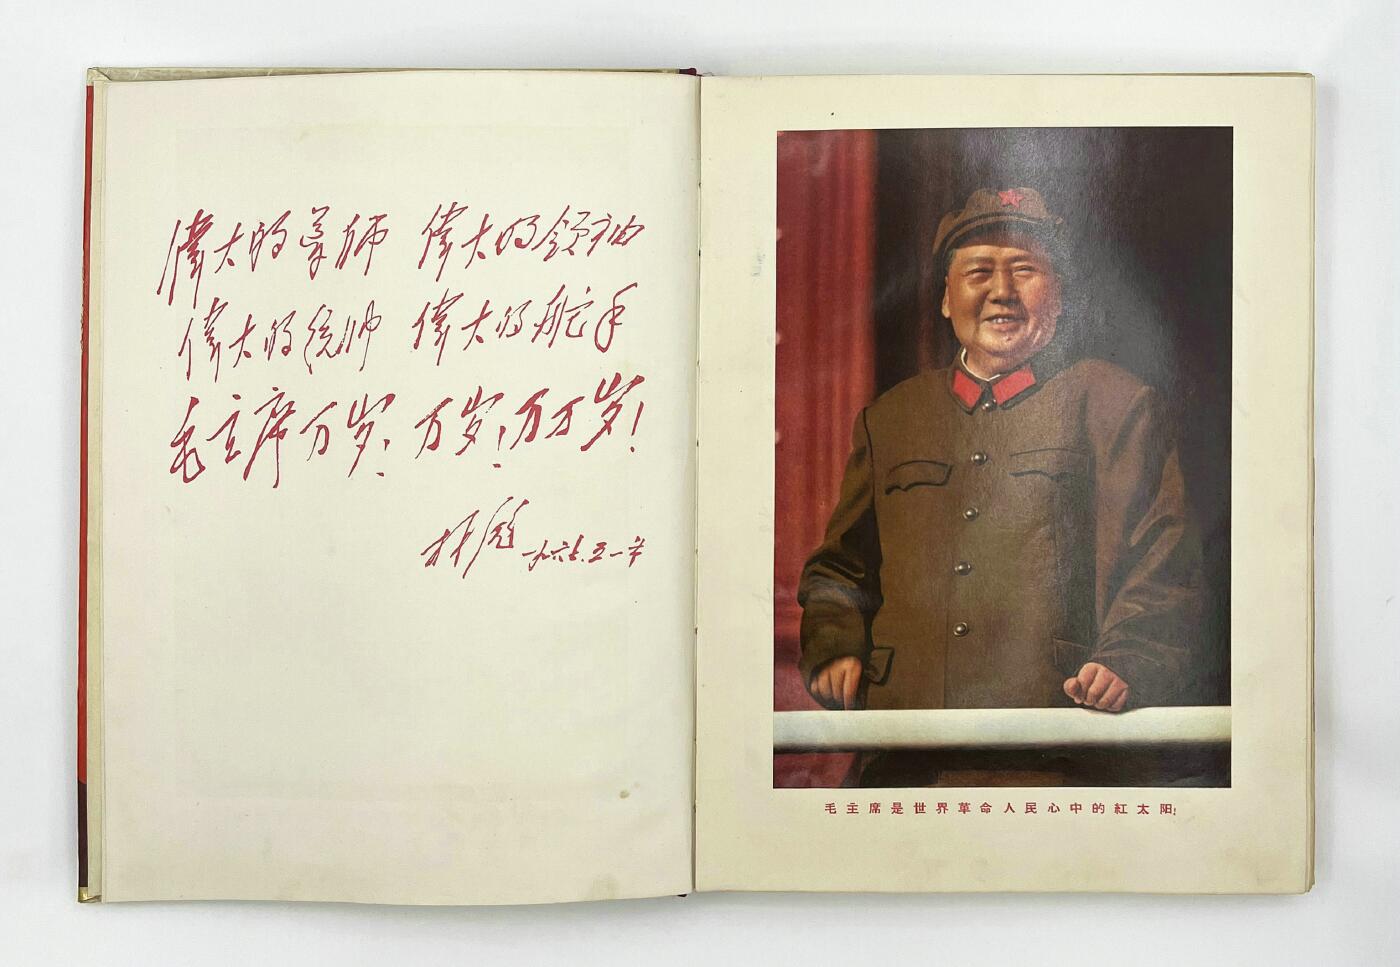 偉大的导师 偉大的領袖
偉大的统帅 偉大的舵手
毛主席万岁！万岁！万万岁！
林彪 一九六七.五一节
毛主席是世界革命人民心中的紅太阳！